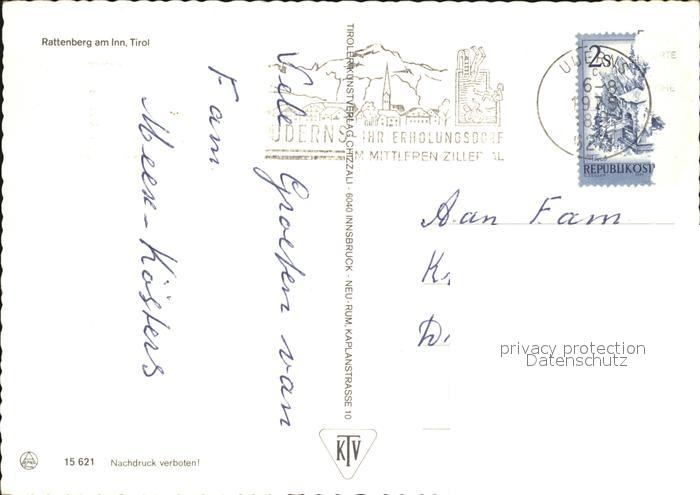 Rattenberg am Inn, Tirol
Vele Groeten van
Fam.
Meex-Kösters
TIROLER KUNSTVERLAG CHIZZALI · 6040 INNSBRUCK - NEU-RUM, KAPLANSTRASSE 10
UDERNS IHR ERHOLUNGSDORF
IM MITTLEREN ZILLERTAL
UDERNS
6-8
1979
2S
REPUBLIK ÖST
Aan Fam
privacy protection
Datenschutz
KTV
15 621 Nachdruck verboten!